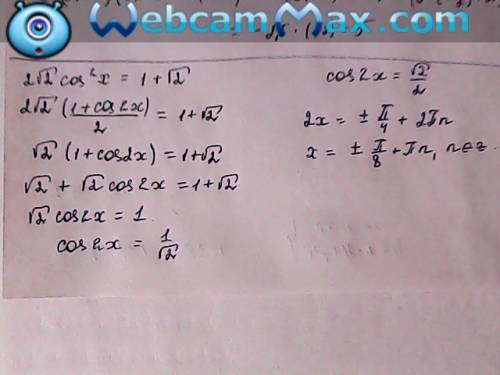 WebcamMax.com
2√2 cos²x = 1+√2
2√2 (1+cos2x)/2 = 1+√2
√2 (1+cos2x) = 1+√2
√2 + √2 cos2x = 1+√2
√2 cos2x = 1
cos2x = 1/√2
cos2x = √2/2
2x = ± π/4 + 2πn
x = ± π/8 + πn, n∈z.